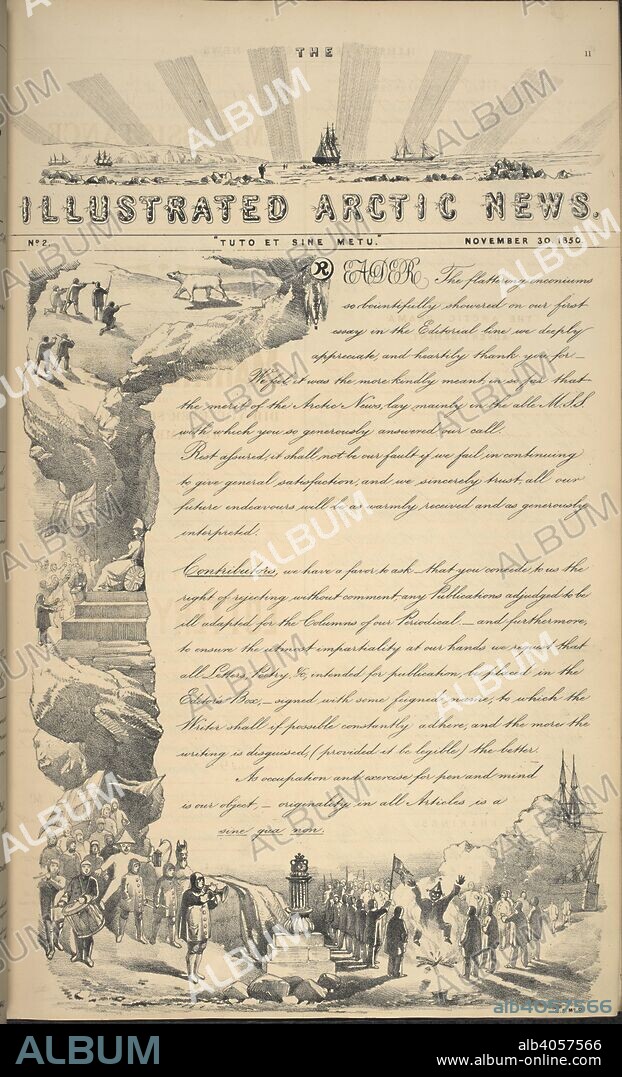 THE
11
ILLUSTRATED ARCTIC NEWS.
Nº 2.
"TUTO ET SINE METU."
NOVEMBER 30. 1850.
READER, The flattering encomiums
so bountifully showered on our first
essay in the Editorial line we deeply
appreciate, and heartily thank you for_
We feel it was the more kindly meant, in so far that
the merit of the Arctic News, lay mainly in the able M.S.S.
with which you so generously answered our call.
Rest assured, it shall not be our fault if we fail, in continuing
to give general satisfaction, and we sincerely trust, all our
future endeavours will be as warmly received and as generously
interpreted.
Contributors, we have a favor to ask_that you concede to us the
right of rejecting without comment any Publications adjudged to be
ill adapted for the Columns of our Periodical_and furthermore,
to ensure the utmost impartiality at our hands we request that
all Letters, Poetry, &c, intended for publication, be placed in the
Editors Box,_signed with some feigned name, to which the
Writer shall if possible constantly adhere, and the more the
writing is disguised, (provided it be legible) the better.
As occupation and exercise for pen and mind
is our object,_originality in all Articles is a
sine qua non.
ALBUM
alb4057566
ALBUM
alb4057566
www.album-online.com